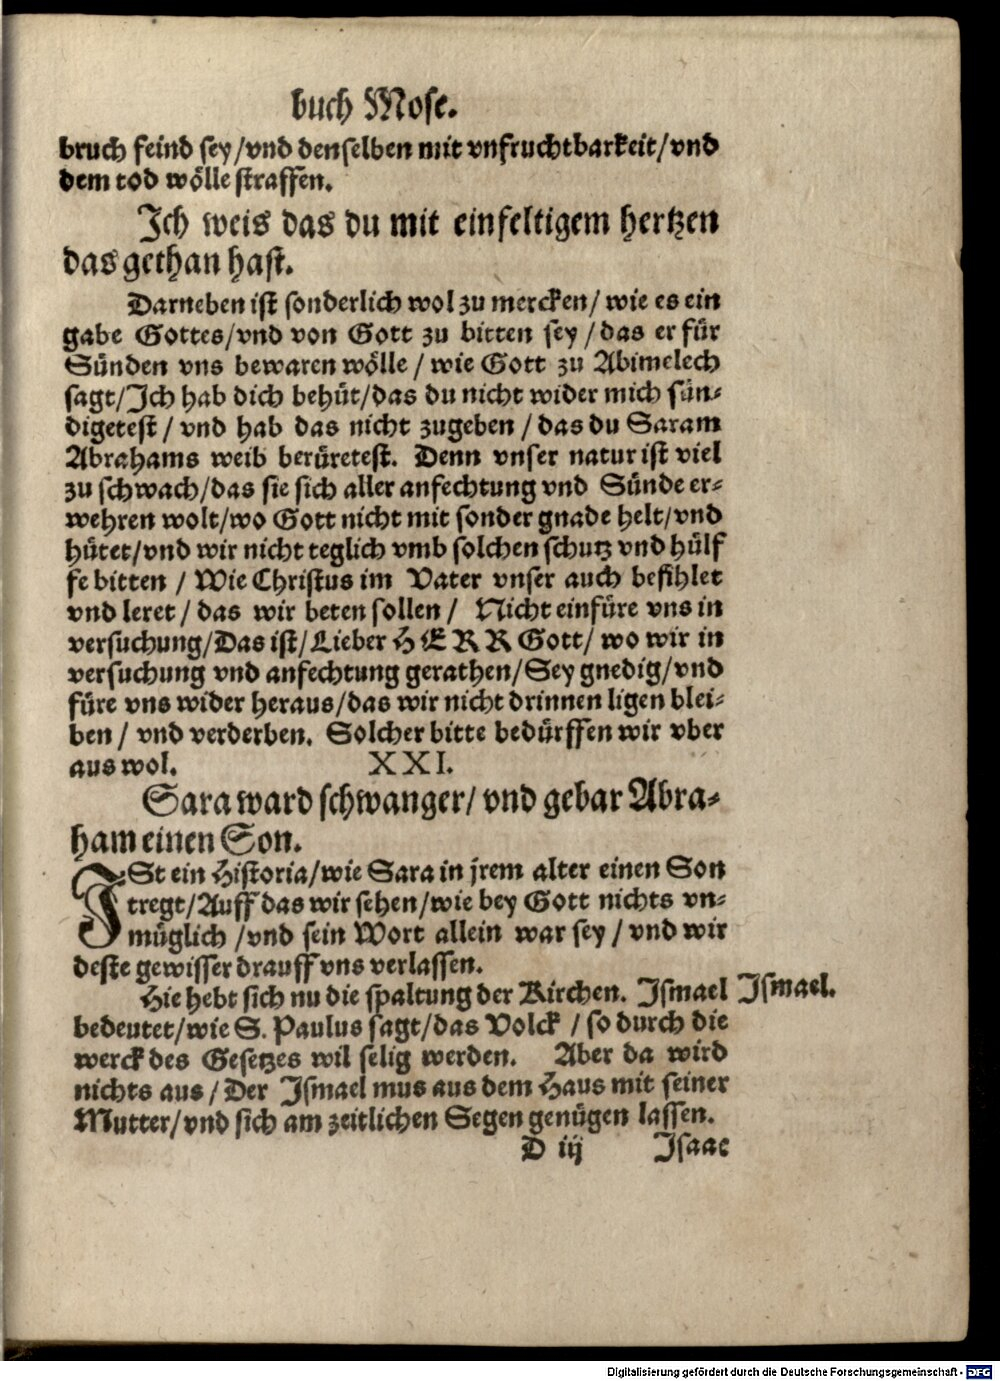 buch Mose.
bruch feind sey/vnd denselben mit vnfruchtbarkeit/vnd
dem tod wölle straffen.
Ich weis das du mit einfeltigem hertzen
das gethan hast.
Darneben ist sonderlich wol zu mercken/ wie es ein
gabe Gottes/vnd von Gott zu bitten sey /das er für
Sünden vns bewaren wölle / wie Gott zu Abimelech
sagt/Ich hab dich behüt/das du nicht wider mich sün-
digetest / vnd hab das nicht zugeben / das du Saram
Abrahams weib berüretest. Denn vnser natur ist viel
zu schwach/das sie sich aller anfechtung vnd Sünde er-
wehren wolt/wo Gott nicht mit sonder gnade helt/vnd
hütet/vnd wir nicht teglich vmb solchen schutz vnd hülf
fe bitten / Wie Christus im Vater vnser auch befihlet
vnd leret / das wir beten sollen / Nicht einfüre vns in
versuchung/Das ist/Lieber HERR Gott/ wo wir in
versuchung vnd anfechtung gerathen/Sey gnedig/vnd
füre vns wider heraus/das wir nicht drinnen ligen blei-
ben / vnd verderben. Solcher bitte bedürffen wir vber
aus wol. XXI.
Sara ward schwanger/ vnd gebar Abra-
ham einen Son.
ISt ein Historia/wie Sara in jrem alter einen Son
tregt/Auff das wir sehen/wie bey Gott nichts vn-
müglich /vnd sein Wort allein war sey / vnd wir
deste gewisser drauff vns verlassen.
Hie hebt sich nu die spaltung der Kirchen. Ismael Ismael.
bedeutet/wie S. Paulus sagt/das Volck / so durch die
werck des Gesetzes wil selig werden. Aber da wird
nichts aus / Der Ismael mus aus dem Haus mit seiner
Mutter/vnd sich am zeitlichen Segen genügen lassen.
D iij Isaac
Digitalisierung gefördert durch die Deutsche Forschungsgemeinschaft - DFG